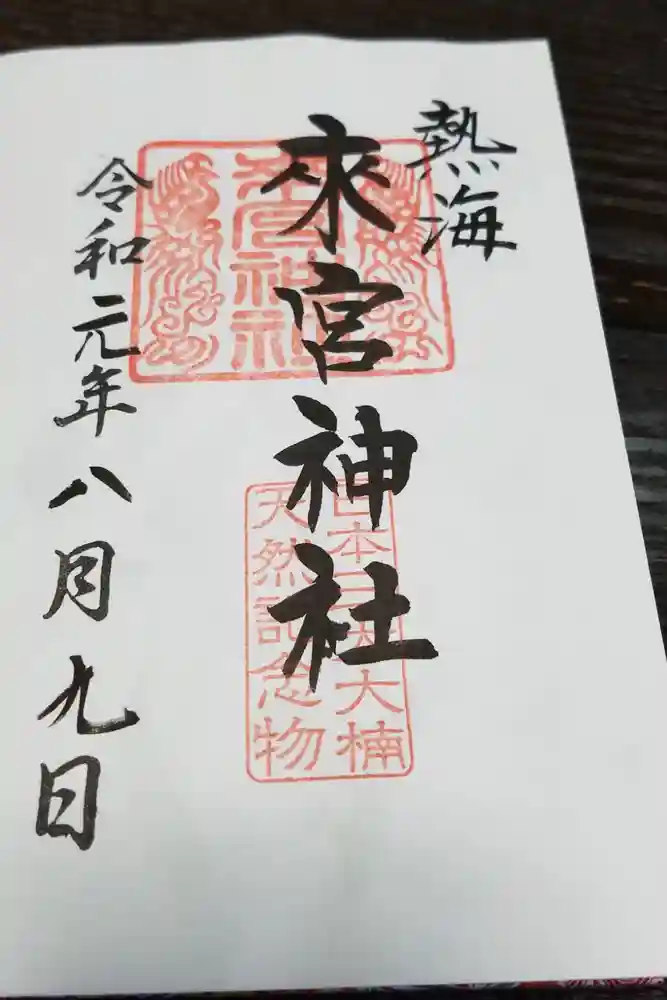 熱海
來宮神社
來宮神社
日本三大大楠
天然記念物
令和元年八月九日